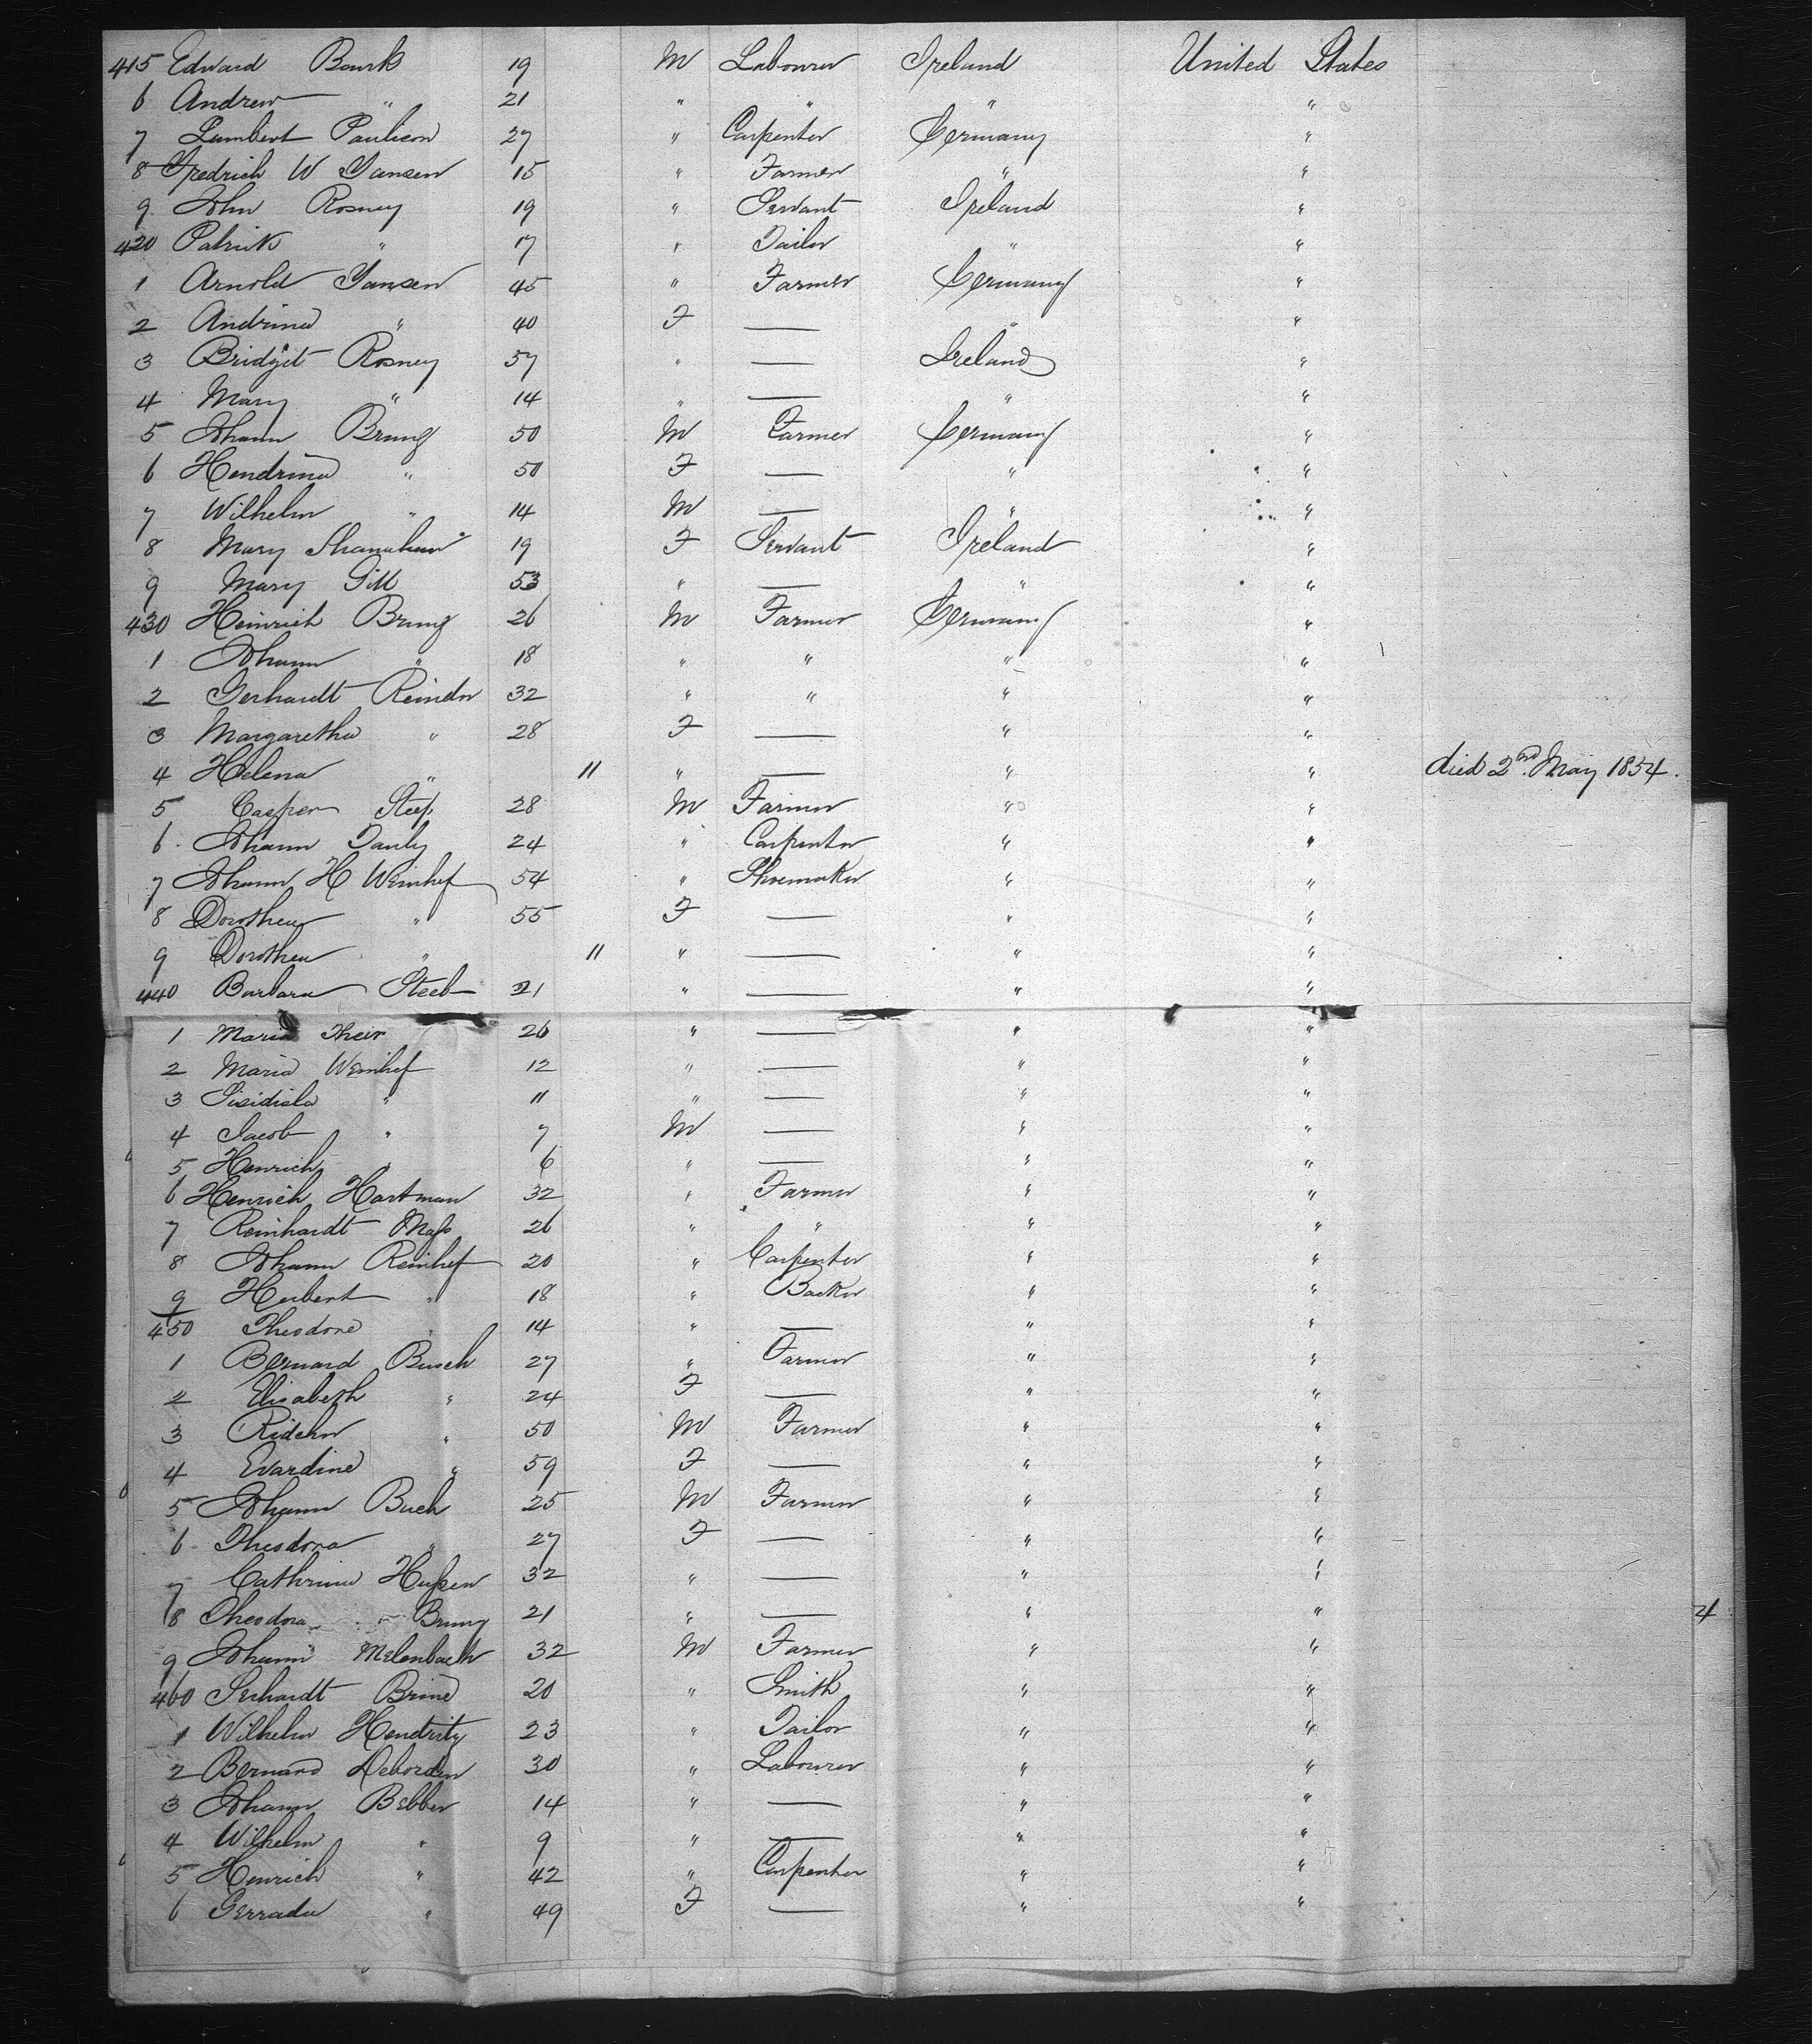 415 Edward Bourk 19 M Labourer Ireland United States
6 Andrew " 21 " " " "
7 Lambert Paulison 27 " Carpenter Germany "
8 Fredrich W Yansen 15 " Farmer " "
9 John Rosney 19 " Servant Ireland "
420 Patrick " 17 " Tailor " "
1 Arnold Yansen 45 " Farmer Germany "
2 Andrina " 40 F — " "
3 Bridget Rosney 57 " — Ireland "
4 Mary " 14 " — " "
5 Johann Brung 50 M Farmer Germany "
6 Hendrina " 50 F — " "
7 Wilhelm " 14 M — " "
8 Mary Shanahan 19 F Servant Ireland "
9 Mary Gill 53 " — " "
430 Heinrich Brung 26 M Farmer Germany "
1 Johann " 18 " " " "
2 Gerhardt Reinder 32 " " " "
3 Margaretha " 28 F — " "
4 Helena " 11 " — " " died 2nd May 1854.
5 Casper Steep 28 M Farmer " "
6 Johann Tauly 24 " Carpenter " "
7 Johann H Weinhef 54 " Shoemaker " "
8 Dorothea " 55 F — " "
9 Dorothea " 11 " — " "
440 Barbara Steeb 21 " — " "
1 Maria Their 26 " — " "
2 Maria Weinhef 12 " — " "
3 " 11 " — " "
4 Jacob " 7 M — " "
5 Henrich " 6 " — " "
6 Henrich Hartman 32 " Farmer " "
7 Reinhardt Mass 26 " " " "
8 Johann Reinhef 20 " Carpenter " "
9 Hubert " 18 " Backer " "
450 Theodore " 14 " — " "
1 Bernard Busch 27 " Farmer " "
2 Elisabeth " 24 F — " "
3 " 50 M Farmer " "
4 Evardine " 59 F — " "
5 Johann Buch 25 M Farmer " "
6 Theodora " 27 F — " "
7 Cathrina 32 " — " "
8 Theodora Brung 21 " — " "
9 Johann Melenbach 32 M Farmer " "
460 Gerhardt Brine 20 " Smith " "
1 Wilhelm 23 " Tailor " "
2 Bernard Deborden 30 " Labourer " "
3 Johann Bebber 14 " — " "
4 Wilhelm " 9 " — " "
5 Henrich " 42 " Carpenter " "
6 Gerrada " 49 F — " "